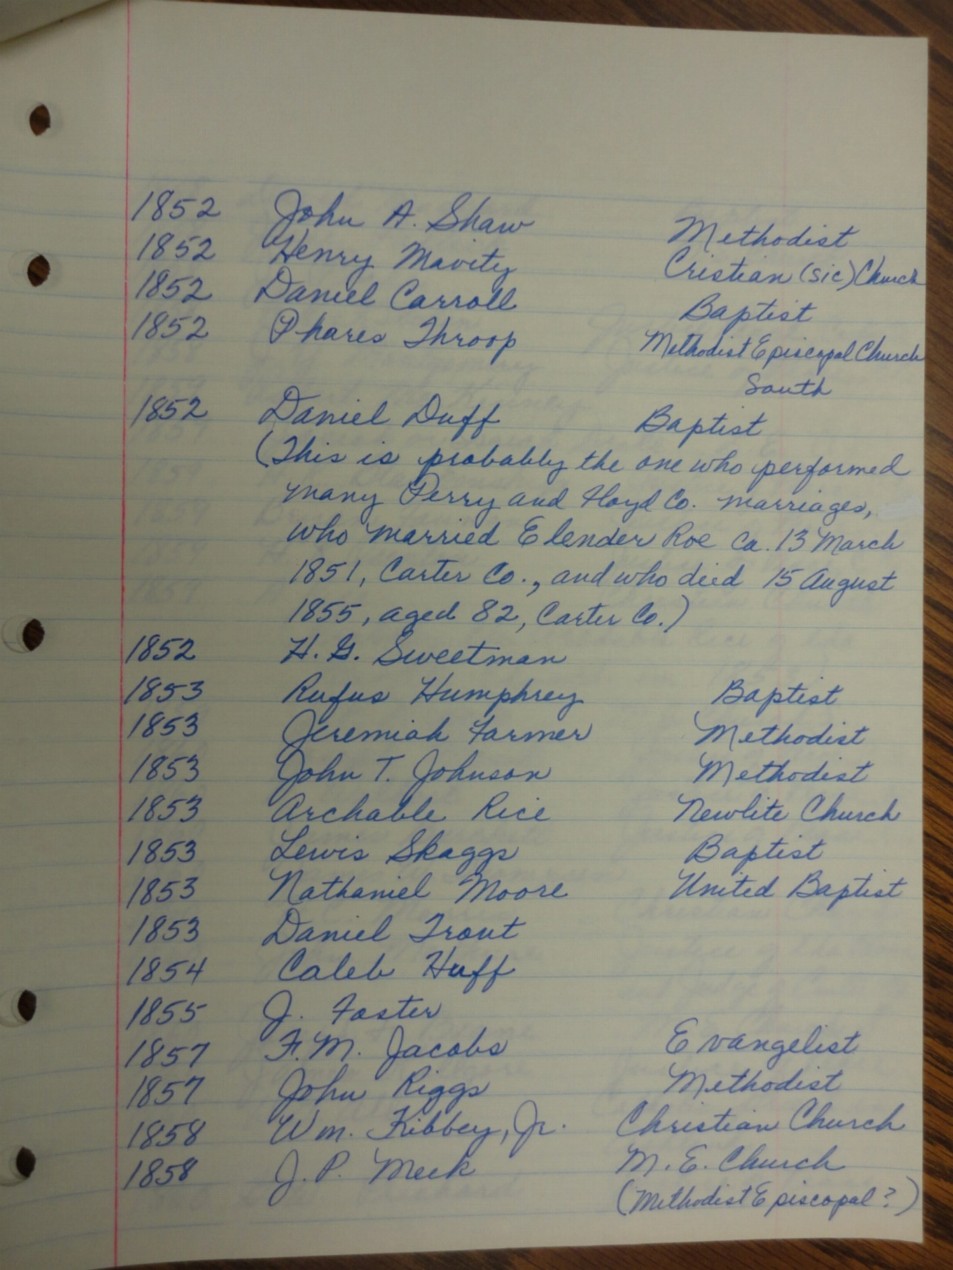 1852 John A. Shaw Methodist
1852 Henry Mavity Cristian (sic) Church
1852 Daniel Carroll Baptist
1852 Phares Throop Methodist Episcopal Church
South
1852 Daniel Duff Baptist
(This is probably the one who performed
many Perry and Floyd Co. marriages,
who married Elender Roe ca. 13 March
1851, Carter Co., and who died 15 August
1855, aged 82, Carter Co.)
1852 H. G. Sweetman
1853 Rufus Humphrey Baptist
1853 Jeremiah Farmer Methodist
1853 John T. Johnson Methodist
1853 Archable Rice Newlite Church
1853 Lewis Skaggs Baptist
1853 Nathaniel Moore United Baptist
1853 Daniel Trout
1854 Caleb Huff
1855 J. Foster
1857 F. M. Jacobs Evangelist
1857 John Riggs Methodist
1858 Wm. Kibbey, Jr. Christian Church
1858 J. P. Meek M. E. Church
(Methodist Episcopal?)